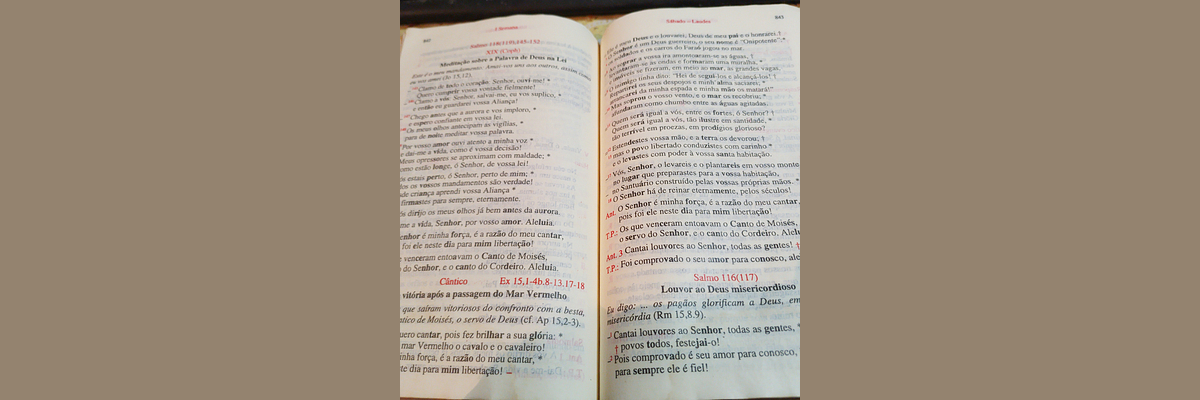 I Semana
Salmo 118(119),145-152
XIX (Coph)
Meditação sobre a Palavra de Deus na Lei
Este é o meu mandamento: Amai-vos uns aos outros, assim como
eu vos amei (Jo 15,12).
Clamo de todo o coração, Senhor, ouvi-me! *
Quero cumprir vossa vontade fielmente!
Clamo a vós: Senhor, salvai-me, eu vos suplico, *
e então eu guardarei vossa Aliança!
Chego antes que a aurora e vos imploro, *
e espero confiante em vossa lei.
Os meus olhos antecipam as vigílias, *
para de noite meditar vossa palavra.
Por vosso amor ouvi atento a minha voz *
e dai-me a vida, como é vossa decisão!
Meus opressores se aproximam com maldade; *
como estão longe, ó Senhor, de vossa lei!
estais perto, ó Senhor, perto de mim; *
os vossos mandamentos são verdade!
de criança aprendi vossa Aliança *
firmastes para sempre, eternamente.
dirijo os meus olhos já bem antes da aurora.
me a vida, Senhor, por vosso amor. Aleluia.
é minha força, é a razão do meu cantar,
foi ele neste dia para mim libertação!
venceram entoavam o Canto de Moisés,
do Senhor, e o canto do Cordeiro. Aleluia.
Cântico Ex 15,1-4b.8-13.17-18
vitória após a passagem do Mar Vermelho
que saíram vitoriosos do confronto com a besta,
de Moisés, o servo de Deus (cf. Ap 15,2-3).
cantar, pois fez brilhar a sua glória: *
mar Vermelho o cavalo e o cavaleiro!
força, é a razão do meu cantar, *
dia para mim libertação! –
Sábado – Laudes
843
é meu Deus e o louvarei, Deus de meu pai e o honrarei. †
O Senhor é um Deus guerreiro, o seu nome é "Onipotente": *
os soldados e os carros do Faraó jogou no mar.
Ao soprar a vossa ira amontoaram-se as águas, †
levantaram-se as ondas e formaram uma muralha, *
e imóveis se fizeram, em meio ao mar, as grandes vagas.
O inimigo tinha dito: "Hei de segui-los e alcançá-los! †
Repartirei os seus despojos e minh'alma saciarei; *
da minha espada e minha mão os matará!"
Mas soprou o vosso vento, e o mar os recobriu; *
afundaram como chumbo entre as águas agitadas.
Quem será igual a vós, entre os fortes, ó Senhor? †
Quem será igual a vós, tão ilustre em santidade, *
tão terrível em proezas, em prodígios glorioso?
Estendestes vossa mão, e a terra os devorou; †
mas o povo libertado conduzistes com carinho *
e o levastes com poder à vossa santa habitação.
Vós, Senhor, o levareis e o plantareis em vosso monte
no lugar que preparastes para a vossa habitação,
no Santuário construído pelas vossas próprias mãos. *
O Senhor há de reinar eternamente, pelos séculos!
Ant. O Senhor é minha força, é a razão do meu cantar,
pois foi ele neste dia para mim libertação!
T.P.: Os que venceram entoavam o Canto de Moisés,
o servo do Senhor, e o canto do Cordeiro.
Ant. 3 Cantai louvores ao Senhor, todas as gentes! †
T.P.: Foi comprovado o seu amor para conosco,
Salmo 116(117)
Louvor ao Deus misericordioso
Eu digo: ... os pagãos glorificam a Deus, em
misericórdia (Rm 15,8.9).
Cantai louvores ao Senhor, todas as gentes, *
† povos todos, festejai-o!
Pois comprovado é seu amor para conosco,
para sempre ele é fiel!